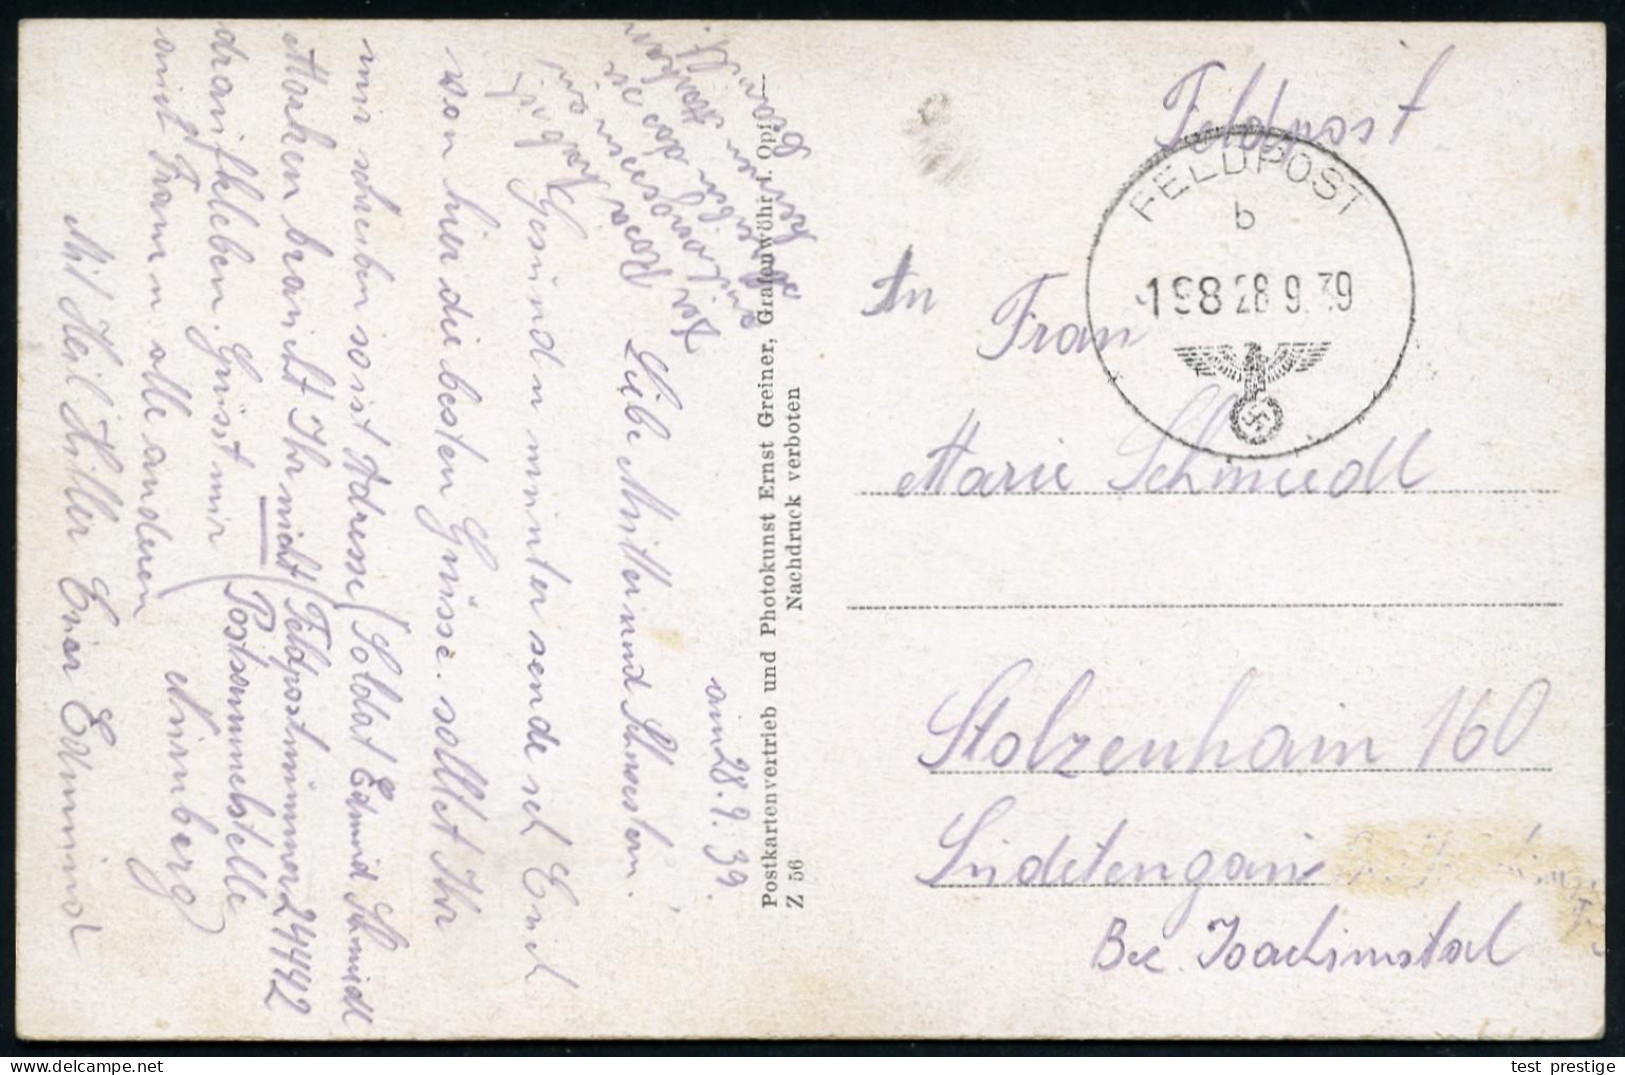 Feldpost
FELDPOST
b
198 28 9. 39
An
Frau
Marie Schmiedl
Stolzenhain 160
Sudetengau
Bez. Joachimstal
Postkartenvertrieb und Photokunst Ernst Greiner, Grafenwöhr i. Opf.
Nachdruck verboten
Z 56
am 28.9.39.
Liebe Mutter und Schwestern.
Gesund u munter sende ich Euch
von hier die besten Grüsse. solltet Ihr
mir schreiben so ist Adresse (Soldat Edmund Schmiedl
Marken braucht Ihr nicht (Feldpostnummer 24442
draufkleben. Grüsst mir (Postsammelstelle
und Frau u alle anderen Nürnberg)
Mit Heil Hitler Euer Edmund